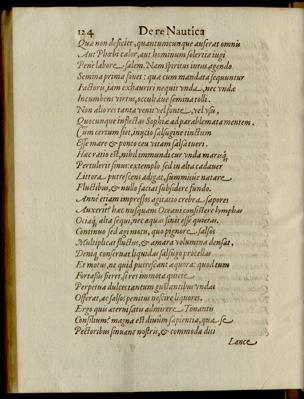 124 De re Nautica
Quæ non deficiet, quantumcunque auferat omnis
Aut Phœbi calor, aut hominum solertia iugi
Penè labore, salem. Nam spiritus intus agendo
Semina prima fouet: quæ cum mandata sequuntur
Factoris, iam exhauriri nequit vnda, nec vnda
Incumbens virtus, occultáue semina tolli.
Non alio res tanta venit vel , vel vsu,
Quocunque inflectas Sophiæ ad parablemata mentem.
Cum certum siet, iniecto salsugine tinctum
Esse mare & ponto ceu vitam salsa tueri.
Hac ratio est, nihil immundi cur vnda marisq́;
Pertulerit sinus: extemplo sed in alta cadauer
Littora putrescens adigat, summiúe natare
Fluctibus, & nullo faciat subsidere fundo.
Anne etiam impressos agitatio crebra sapores
Auxerit? hac nusquam Oceani consistere lymphas
Ociaq́; alta sequi, nec æquas sinit esse quietas.
Continuo sed agi motu, quo pignore salsos
Multiplicat fluctus, & amara volumina densat.
Deniq; conseruat liquidas salsugo procellas
Et motus, ne quid putrescant æquora: quod tum
Fortassis fieret, si res immota quiete
Perpetua dulces tantum gustantibus vndas
Offerat, ac salsos penitus nescire liquores.
Ergo quis æterni satis admirere Tonantis
Consilium? magna est diuûm sapientia, quæ se
Pectoribus sinuans nostris, & commoda diti
Lance